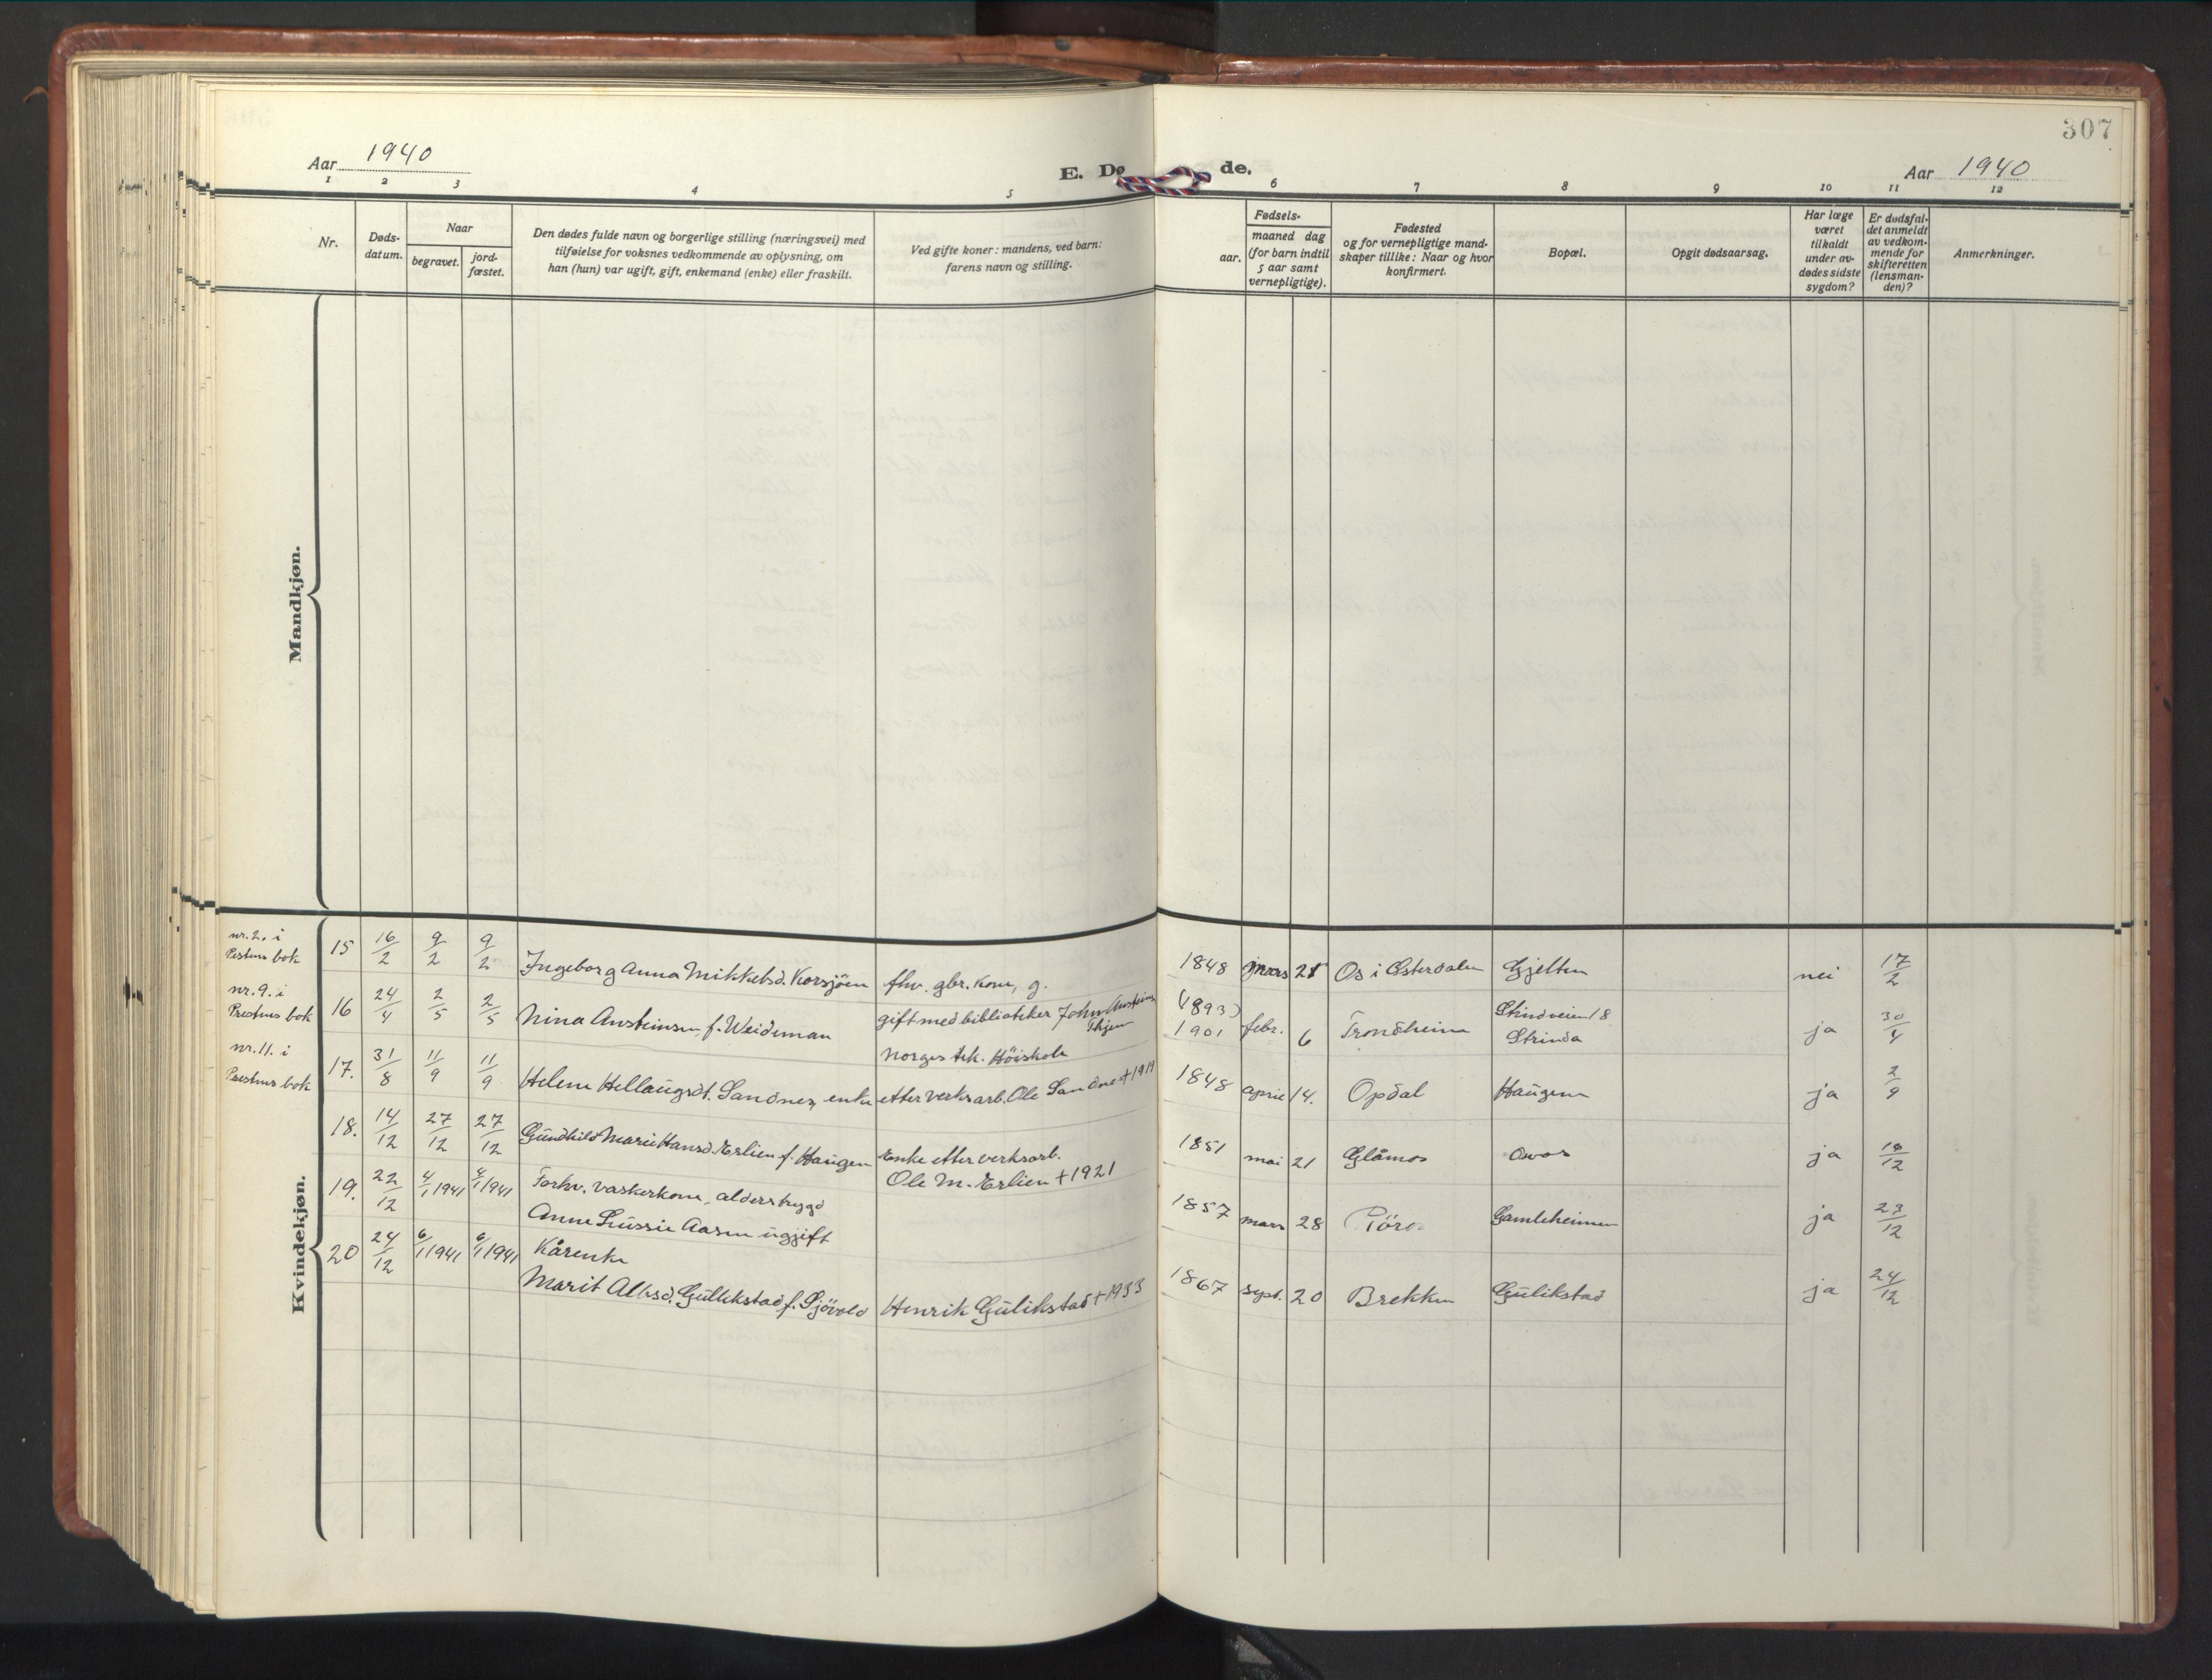 307
Aar 1940
E. Dø de.
Aar 1940
1 2 3 4 5 6 7 8 9 10 11 12
Nr.
Døds-
datum.
Naar
begravet.
jord-
fæstet.
Den dødes fulde navn og borgerlige stilling (næringsvei) med
tilføielse for voksnes vedkommende av oplysning, om
han (hun) var ugift, gift, enkemand (enke) eller fraskilt.
Ved gifte koner: mandens, ved barn:
farens navn og stilling.
Fødsels-
aar.
maaned dag
(for barn indtil
5 aar samt
vernepligtige).
Fødested
og for vernepligtige mand-
skaper tillike: Naar og hvor
konfirmert.
Bopæl.
Opgit dødsaarsag.
Har læge
været
tilkaldt
under av-
dødes sidste
sygdom?
Er dødsfal-
det anmeldt
av vedkom-
mende for
skifteretten
(lensman-
den)?
Anmerkninger.
Mandkjøn.
Kvindekjøn.
nr. 2. i
Prestens bok
15 16/2 9/2 9/2 Ingeborg Anna Mikkelsd. Korsjöen fhv. gbr. kone, g. 1848 mars 21 Os i Østerdalen Gjelten nei 17/2
nr. 9. i
Prestens bok
16 24/4 2/5 2/5 Nina Ansteinsen f. Weideman gift med biblioteker John Ansteinsen
Norges tek. Höiskole
(1893)
1901 febr. 6 Trondheim Strindveien 18
Strinda ja 30/4
nr. 11. i
Prestens bok
17. 31/8 11/9 11/9 Helene Hellaugsdt. Sandnes, enke etter verksarb. Ole Sandnes +1919 1848 april 14. Opdal Haugen ja 2/9
18. 14/12 27/12 27/12 Gundhild Marie Hansd. Erlien f. Haugen Enke etter verksarb.
Ole M. Erlien +1921 1851 mai 21 Glåmos ja 18/12
19. 22/12 4/1 1941 4/1 1941 Forhv. vaskerkone, alderstrygd
Anne Lussie Aasen ugift 1857 mars 28 Röros Gamleheimen ja 23/12
20 24/12 6/1 1941 6/1 1941 Kårenke
Marit Olsd. Gullikstad f. Sjövold Henrik Gulikstad +1933 1867 sept. 20 Brekken Gulikstad ja 24/12